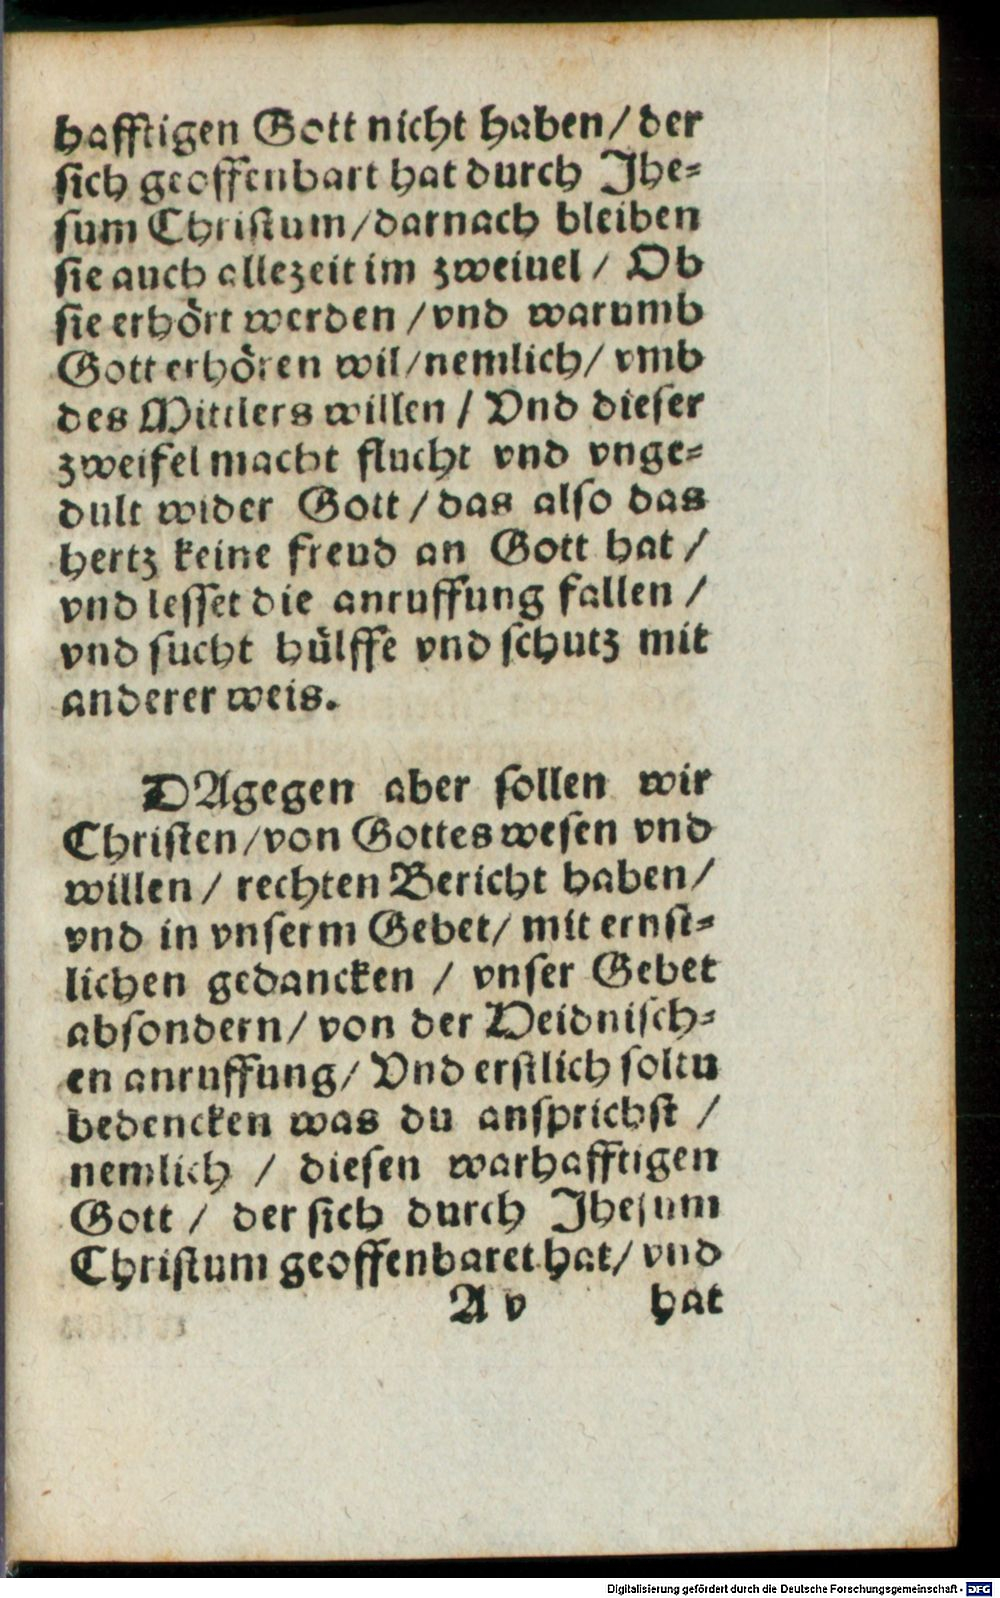 hafftigen Gott nicht haben/ der
sich geoffenbart hat durch Jhe⸗
sum Christum/darnach bleiben
sie auch allezeit im zweiuel / Ob
sie erhört werden /vnd warumb
Gott erhören wil/nemlich/ vmb
des Mittlers willen / Vnd dieser
zweifel macht flucht vnd vnge⸗
dult wider Gott /das also das
hertz keine freud an Gott hat /
vnd lesset die anruffung fallen /
vnd sucht hülffe vnd schutz mit
anderer weis.
DAgegen aber sollen wir
Christen/von Gottes wesen vnd
willen / rechten Bericht haben/
vnd in vnserm Gebet/ mit ernst⸗
lichen gedancken / vnser Gebet
absondern/ von der Heidnisch⸗
en anruffung/ Vnd erstlich soltu
bedencken was du ansprichst /
nemlich / diesen warhafftigen
Gott / der sich durch Jhesum
Christum geoffenbaret hat/ vnd
A v hat
Digitalisierung gefördert durch die Deutsche Forschungsgemeinschaft - DFG